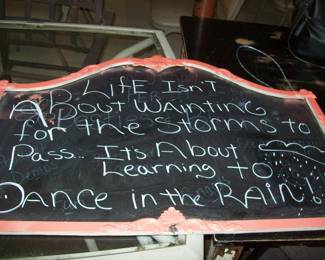 LifE Isn't
About Wainting
for the Storms to
Pass... Its About
Learning to
Dance in the RAIN!